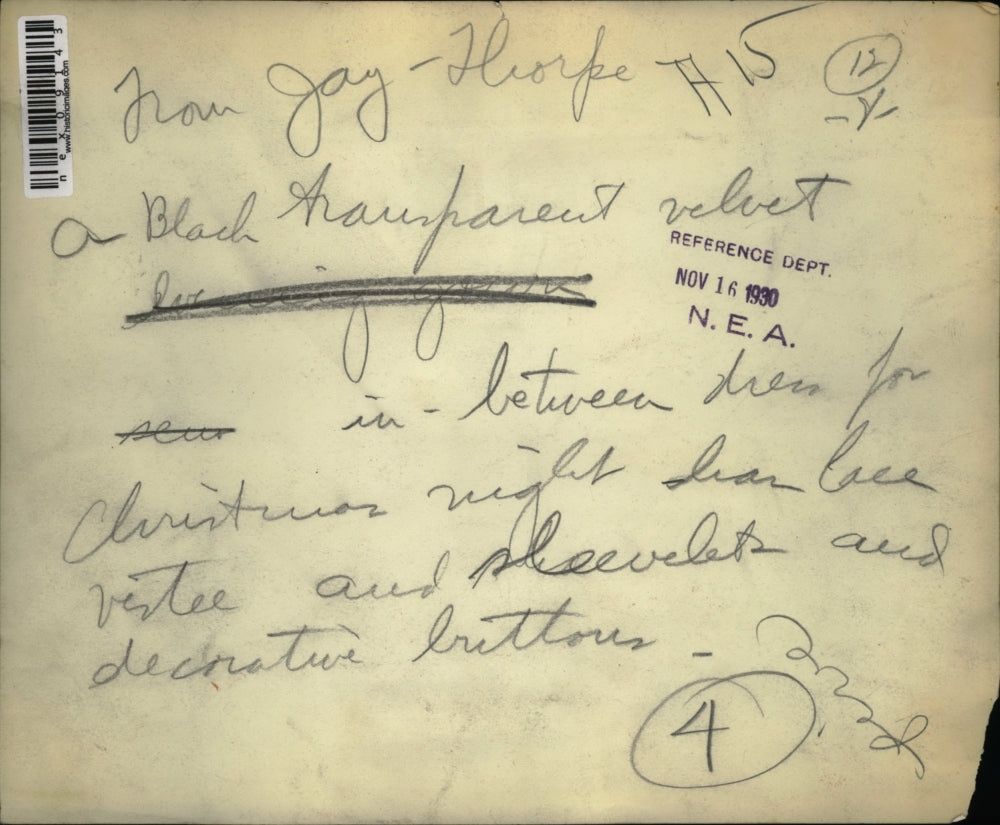 From Jay-Thorpe # 15
12
a Black transparent velvet
evening gown
REFERENCE DEPT.
NOV 16 1930
N. E. A.
in-between dress for
Christmas night has lace
vestee and sleevelets and
decorative buttons -
4
nex09143
www.historicimages.com